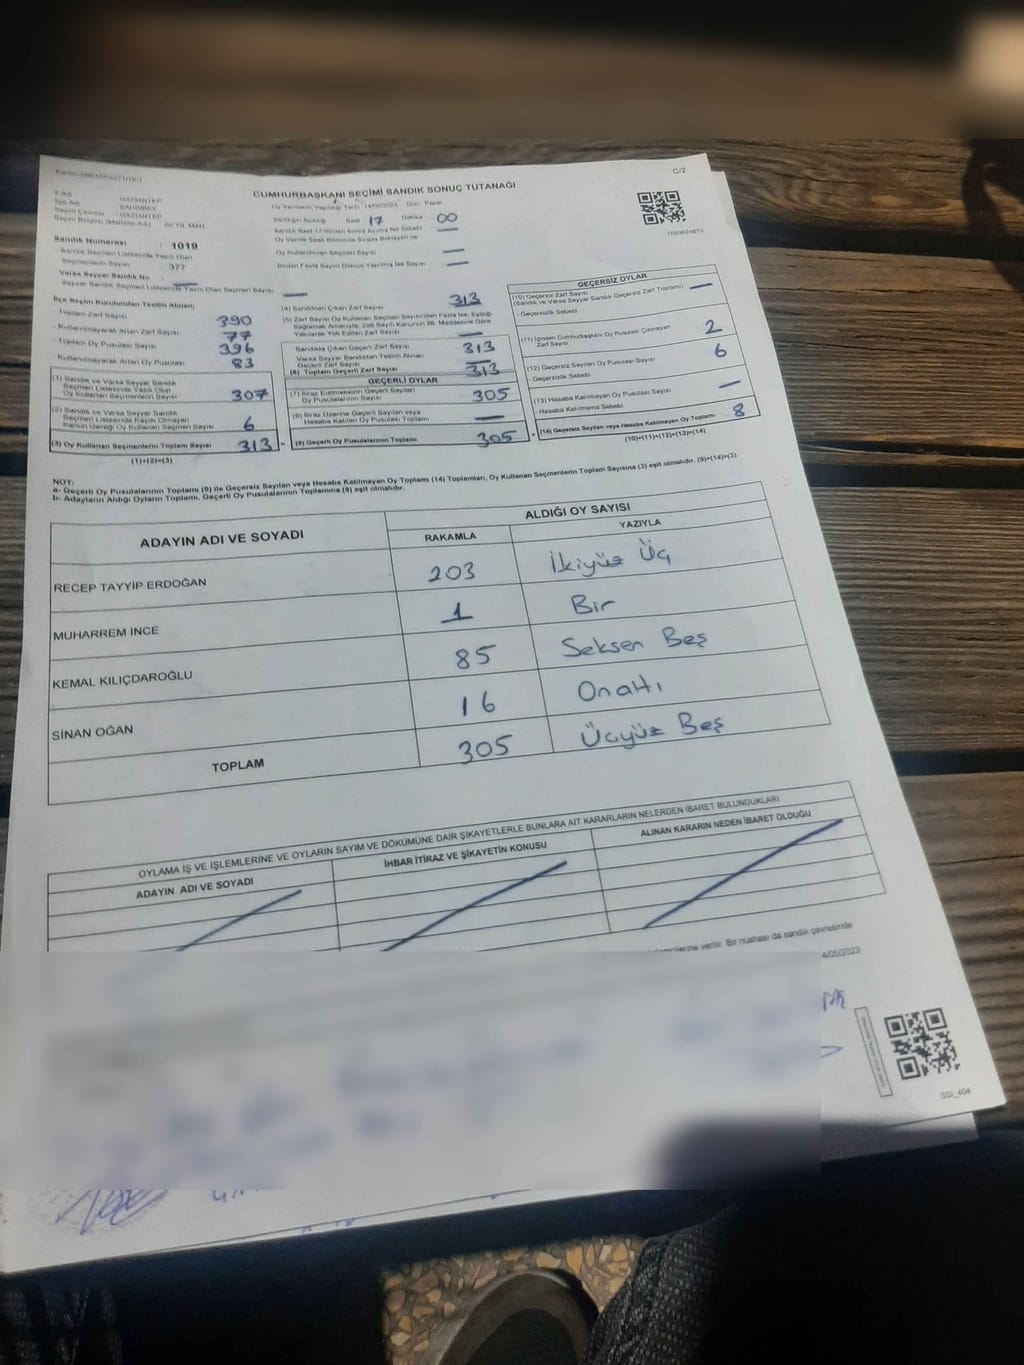 C/2
CUMHURBAŞKANI SEÇİMİ SANDIK SONUÇ TUTANAĞI
İl Adı : GAZİANTEP
İlçe Adı : ŞAHİNBEY
Seçim Çevresi : GAZİANTEP
Oy Vermenin Yapıldığı Tarih Gün : Pazar
Sandığın Açıldığı Saat 17 Dakika 00
Sandık Numarası : 1019
Sandık Seçmen Listesinde Yazılı Olan
Seçmenlerin Sayısı : 377
Varsa Seyyar Sandık No
Seyyar Sandık Listesinde Yazılı Olan Seçmen Sayısı
Oy Kullandığı Sayısı
Birden Fazla Sayım Döküm Yapılmış İse Sayısı
İlçe Seçim Kurulundan Teslim Alınan;
Toplam Zarf Sayısı 390
Kullanılmayarak Artan Zarf Sayısı 77
Toplam Oy Pusulası Sayısı 396
Kullanılmayarak Artan Oy Pusulası 83
(1) Sandık ve Varsa Seyyar Sandık
Seçmen Listesinde Yazılı Olup
Oy Kullanan Seçmenlerin Sayısı 307
(2) Sandık ve Varsa Seyyar Sandık
Seçmen Listesinde Kayıtlı Olmayan
Kanun Gereği Oy Kullanan Seçmen Sayısı 6
(3) Oy Kullanan Seçmenlerin Toplam Sayısı 313
(1)+(2)=(3)
(4) Sandıktan Çıkan Zarf Sayısı 313
(5) Zarf Sayısı Oy Kullanan Seçmen Sayısından Fazla İse, Eşitliği
Sağlamak Amacıyla, 298 Sayılı Kanunun 98. Maddesine Göre
Yakılarak Yok Edilen Zarf Sayısı
Sandıkta Çıkan Geçerli Zarf Sayısı 313
Varsa Seyyar Sandıktan Teslim Alınan
Geçerli Zarf Sayısı
(6) Toplam Geçerli Zarf Sayısı 313
GEÇERLİ OYLAR
(7) İtiraz Edilmeksizin Geçerli Sayılan
Oy Pusulalarının Sayısı 305
(8) İtiraz Üzerine Geçerli Sayılan veya
Hesaba Katılan Oy Pusulası Toplamı
(9) Geçerli Oy Pusulalarının Toplamı 305
GEÇERSİZ OYLAR
(10) Geçersiz Zarf Sayısı
(Sandık ve Varsa Seyyar Sandık Geçersiz Zarf Toplamı)
Geçersizlik Sebebi
(11) İçinden Cumhurbaşkanı Oy Pusulası Çıkmayan
Zarf Sayısı 2
(12) Geçersiz Sayılan Oy Pusulası Sayısı 6
Geçersizlik Sebebi
(13) Hesaba Katılmayan Oy Pusulası Sayısı
Hesaba Katılmama Sebebi
(14) Geçersiz Sayılan veya Hesaba Katılmayan Oy Toplamı 8
(10)+(11)+(12)+(13)=(14)
NOT:
a- Geçerli Oy Pusulalarının Toplamı (9) ile Geçersiz Sayılan veya Hesaba Katılmayan Oy Toplamı (14) Toplamları, Oy Kullanan Seçmenlerin Toplam Sayısına (3) eşit olmalıdır. (9)+(14)=(3)
b- Adayların Aldığı Oyların Toplamı, Geçerli Oy Pusulalarının Toplamına (9) eşit olmalıdır.
ADAYIN ADI VE SOYADI ALDIĞI OY SAYISI
RAKAMLA YAZIYLA
RECEP TAYYİP ERDOĞAN 203 İkiyüz Üç
MUHARREM İNCE 1 Bir
KEMAL KILIÇDAROĞLU 85 Seksen Beş
SİNAN OĞAN 16 Onaltı
TOPLAM 305 Üçyüz Beş
OYLAMA İŞ VE İŞLEMLERİNE VE OYLARIN SAYIM VE DÖKÜMÜNE DAİR ŞİKAYETLERLE BUNLARA AİT KARARLARIN NELERDEN İBARET BULUNDUKLARI
ADAYIN ADI VE SOYADI İHBAR İTİRAZ VE ŞİKAYETİN KONUSU ALINAN KARARIN NEDEN İBARET OLDUĞU
verilir. Bir nüshası da sandık çevresinde
4/05/2023
SSİ_404